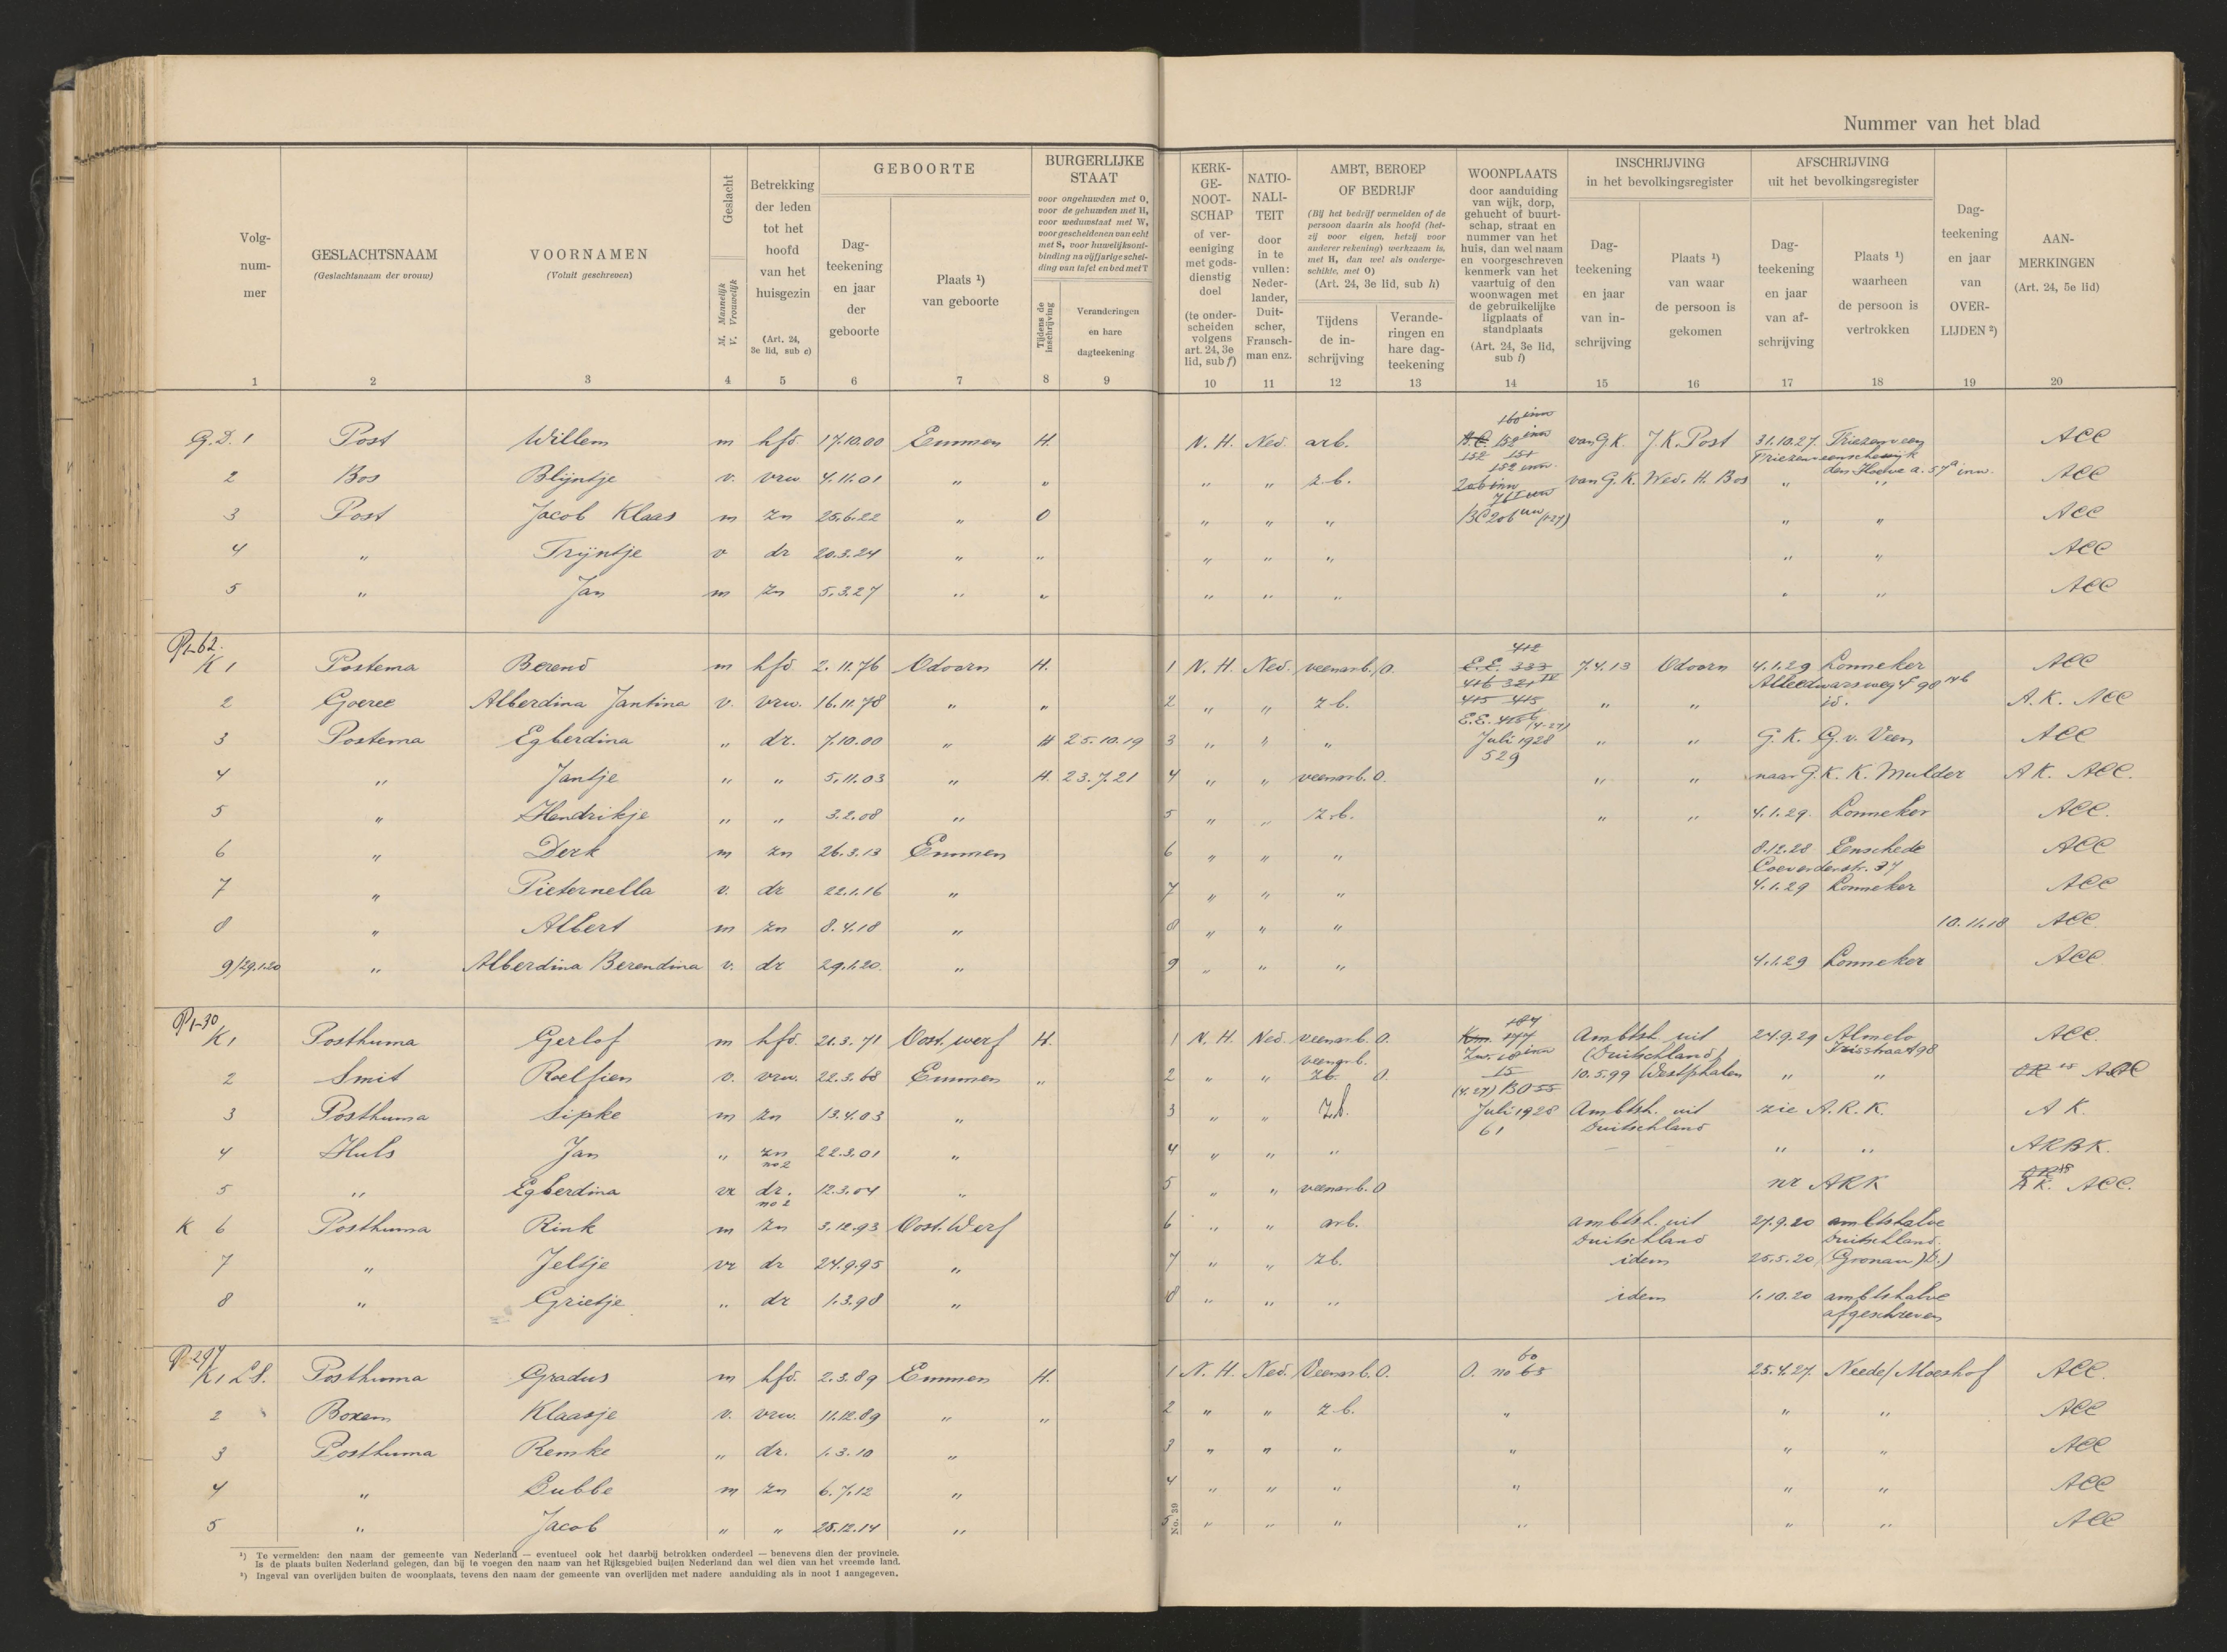 Nummer van het blad
Volg-
num-
mer
1
GESLACHTSNAAM
(Geslachtsnaam der vrouw)
2
VOORNAMEN
(Voluit geschreven)
3
Geslacht
M. Mannelijk
V. Vrouwelijk
4
Betrekking
der leden
tot het
hoofd
van het
huisgezin
(Art. 24,
3e lid, sub c)
5
GEBOORTE
Dag-
teekening
en jaar
der
geboorte
6
Plaats ¹)
van geboorte
7
BURGERLIJKE
STAAT
voor ongehuwden met O,
voor de gehuwden met H,
voor weduwstaat met W,
voor gescheidenen van echt
met S, voor huwelijksont-
binding na vijfjarige schei-
ding van tafel en bed met T
Tijdens de
inschrijving
8
Veranderingen
en hare
dagteekening
9
KERK-
GE-
NOOT-
SCHAP
of ver-
eeniging
met gods-
dienstig
doel
(te onder-
scheiden
volgens
art. 24, 3e
lid, sub f)
10
NATIO-
NALI-
TEIT
door
in te
vullen:
Neder-
lander,
Duit-
scher,
Fransch-
man enz.
11
AMBT, BEROEP
OF BEDRIJF
(Bij het bedrijf vermelden of de
persoon daarin als hoofd (het-
zij voor eigen, hetzij voor
anderer rekening) werkzaam is,
met H, dan wel als onderge-
schikte, met O)
(Art. 24, 3e lid, sub h)
Tijdens
de in-
schrijving
12
Verande-
ringen en
hare dag-
teekening
13
WOONPLAATS
door aanduiding
van wijk, dorp,
gehucht of buurt-
schap, straat en
nummer van het
huis, dan wel naam
en voorgeschreven
kenmerk van het
vaartuig of den
woonwagen met
de gebruikelijke
ligplaats of
standplaats
(Art. 24, 3e lid,
sub i)
14
INSCHRIJVING
in het bevolkingsregister
Dag-
teekening
en jaar
van in-
schrijving
15
Plaats ¹)
van waar
de persoon is
gekomen
16
AFSCHRIJVING
uit het bevolkingsregister
Dag-
teekening
en jaar
van af-
schrijving
17
Plaats ¹)
waarheen
de persoon is
vertrokken
18
Dag-
teekening
en jaar
van
OVER-
LIJDEN ²)
19
AAN-
MERKINGEN
(Art. 24, 5e lid)
20
G.D. 1 Post Willem m hfd 17.10.00 Emmen H. N.H. Ned. arb. 152 van G.K. J.K. Post 31.10.27 Vriezenveen ACC
2 Bos Blijntje v. vrw 4.11.01 " " " " z.b. van G.K. Wed. H. Bos " " ACC
3 Post Jacob Klaas m zn 25.6.22 " O " " " BC 206 " " ACC
4 " Trijntje v dr 20.3.24 " " " " " " " ACC
5 " Jan m zn 5.3.27 " " " " " " " ACC
P1-62.
K 1 Postema Berend m hfd. 2.11.76 Odoorn H. 1 N.H. Ned. veenarb. O. E.E. 333 7.4.13 Odoorn 4.1.29 Lonneker ACC
2 Goeree Alberdina Jantina v. vrw. 16.11.78 " " 2 " " z b. 415 415 " " id. A.K. ACC
3 Postema Egberdina " dr. 7.10.00 " H 25.10.19 3 " " " Juli 1928 " " G.K. G. v. Veen ACC
529
4 " Jantje " " 5.11.03 " H. 23.7.21 4 " " veenarb. O. " " naar G.K. K. Mulder A K. ACC.
5 " Hendrikje " " 3.2.08 " 5 " " z.b. " " 4.1.29. Lonneker ACC.
6 " Derk m zn 26.3.13 Emmen 6 " " " 8.12.28 Enschede ACC
Coevorderstr. 37
7 " Pieternella v. dr 22.1.16 " 7 " " " 4.1.29 Lonneker ACC
8 " Albert m zn 8.4.18 " 8 " " " 10.11.18 ACC.
9/29.1.20 " Alberdina Berendina v. dr 29.1.20. " 9 " " " 4.1.29 Lonneker ACC.
P1-30
K 1 Posthuma Gerlof m hfd. 21.3.71 Oost. werf H. 1 N.H. Ned. veenarb. O. Ambtsh. uit 24.9.29 Almelo ACC.
(Duitschland)
2 Smit Roelfien v. vrw. 22.3.68 Emmen " 2 " " zb. O. 15 10.5.99 Westphalen " "
3 Posthuma Sipke m zn 13.4.03 " 3 " " z.b. Juli 1928 Ambtsh. uit zie A.R.K. A K.
61 Duitschland
4 Huls Jan " zn 22.3.01 " 4 " " " " " ARBK.
no 2
5 " Egberdina vr dr. 12.3.04 " 5 " " veenarb. O nr ARK ACC.
no 2
K 6 Posthuma Rink m zn 3.12.93 Oost. Werf 6 " " arb. ambtsh. uit 27.9.20 ambtshalve
Duitschland Duitschland.
7 " Jeltje vr dr 24.9.95 " 7 " " zb. idem 25.5.20 (Gronau)(D.)
8 " Grietje " dr 1.3.98 " 8 " " " idem 1.10.20 ambtshalve
afgeschreven
P-297
K 1 LS. Posthuma Gradus m hfd. 2.3.89 Emmen H. 1 N.H. Ned. Veenarb. O. O. no 63 60 25.4.27. Neede/Moeshof ACC.
2 Boxem Klaasje v. vrw. 11.12.89 " " 2 " " z.b. " " " ACC
3 Posthuma Remke " dr. 1.3.10 " 3 " " " " " " ACC
4 " Bubbe m zn 6.7.12 " 4 " " " " " " ACC
5 " Jacob " " 25.12.14 " 5 " " " " " " ACC
No. 39
¹) Te vermelden: den naam der gemeente van Nederland — eventueel ook het daarbij betrokken onderdeel — benevens dien der provincie.
Is de plaats buiten Nederland gelegen, dan bij te voegen den naam van het Rijksgebied buiten Nederland dan wel dien van het vreemde land.
²) Ingeval van overlijden buiten de woonplaats, tevens den naam der gemeente van overlijden met nadere aanduiding als in noot 1 aangegeven.